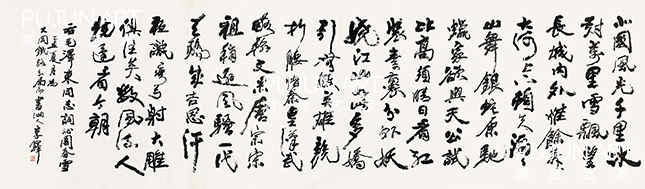 PUJUN ART
北國風光千里冰
封萬里雪飄望
長城內外惟餘莽莽
大河上下頓失滔滔
山舞銀蛇原馳
蠟象欲與天公試
比高須晴日看紅
裝素裹分外妖
嬈江山如此多嬌
引無數英雄競
折腰惜秦皇漢武
略輸文采唐宗宋
祖稍遜風騷一代
天驕成吉思汗
只識彎弓射大雕
俱往矣數風流人
物還看今朝
右毛澤東同志詞沁園春雪
夏月為
大同鐵路 書 李鐸